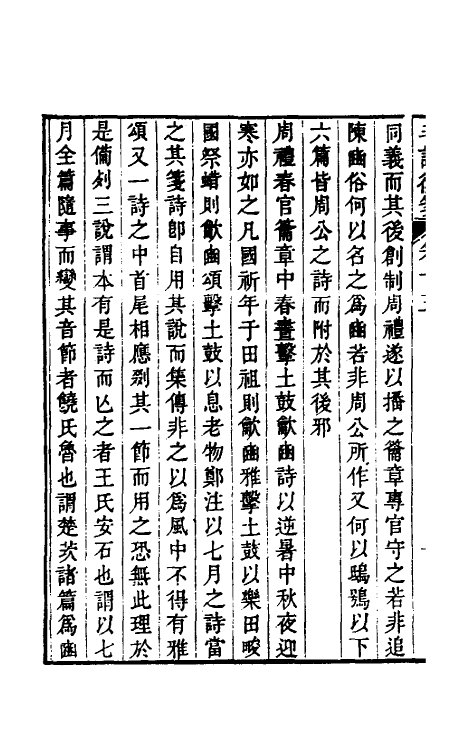 同義而其後創制周禮遂以播之籥章專官守之若非追
陳豳俗何以名之為豳若非周公所作又何以鴟鴞以下
六篇皆周公之詩而附於其後邪
周禮春官籥章中春晝擊土鼓龡豳詩以逆暑中秋夜迎
寒亦如之凡國祈年于田祖則龡豳雅擊土鼓以樂田畯
國祭蜡則龡豳頌擊土鼓以息老物鄭注以七月之詩當
之其箋詩卽自用其說而集傳非之以為風中不得有雅
頌又一詩之中首尾相應剟其一節而用之恐無此理於
是備列三說謂本有是詩而亡之者王氏安石也謂以七
月全篇隨事而變其音節者饒氏魯也謂楚茨諸篇為豳